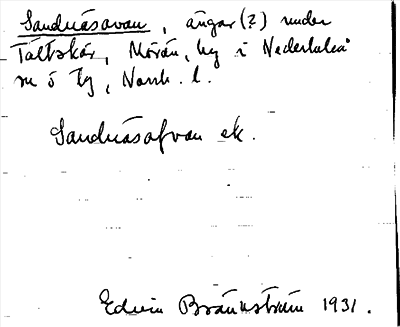 Sandnäsavan, ängar(?) under
Tältskär, Morån, by i Nederluleå
sn ö by, Norrb. l.
Sandnäsafvan ek.
Edvin Brännström 1931.